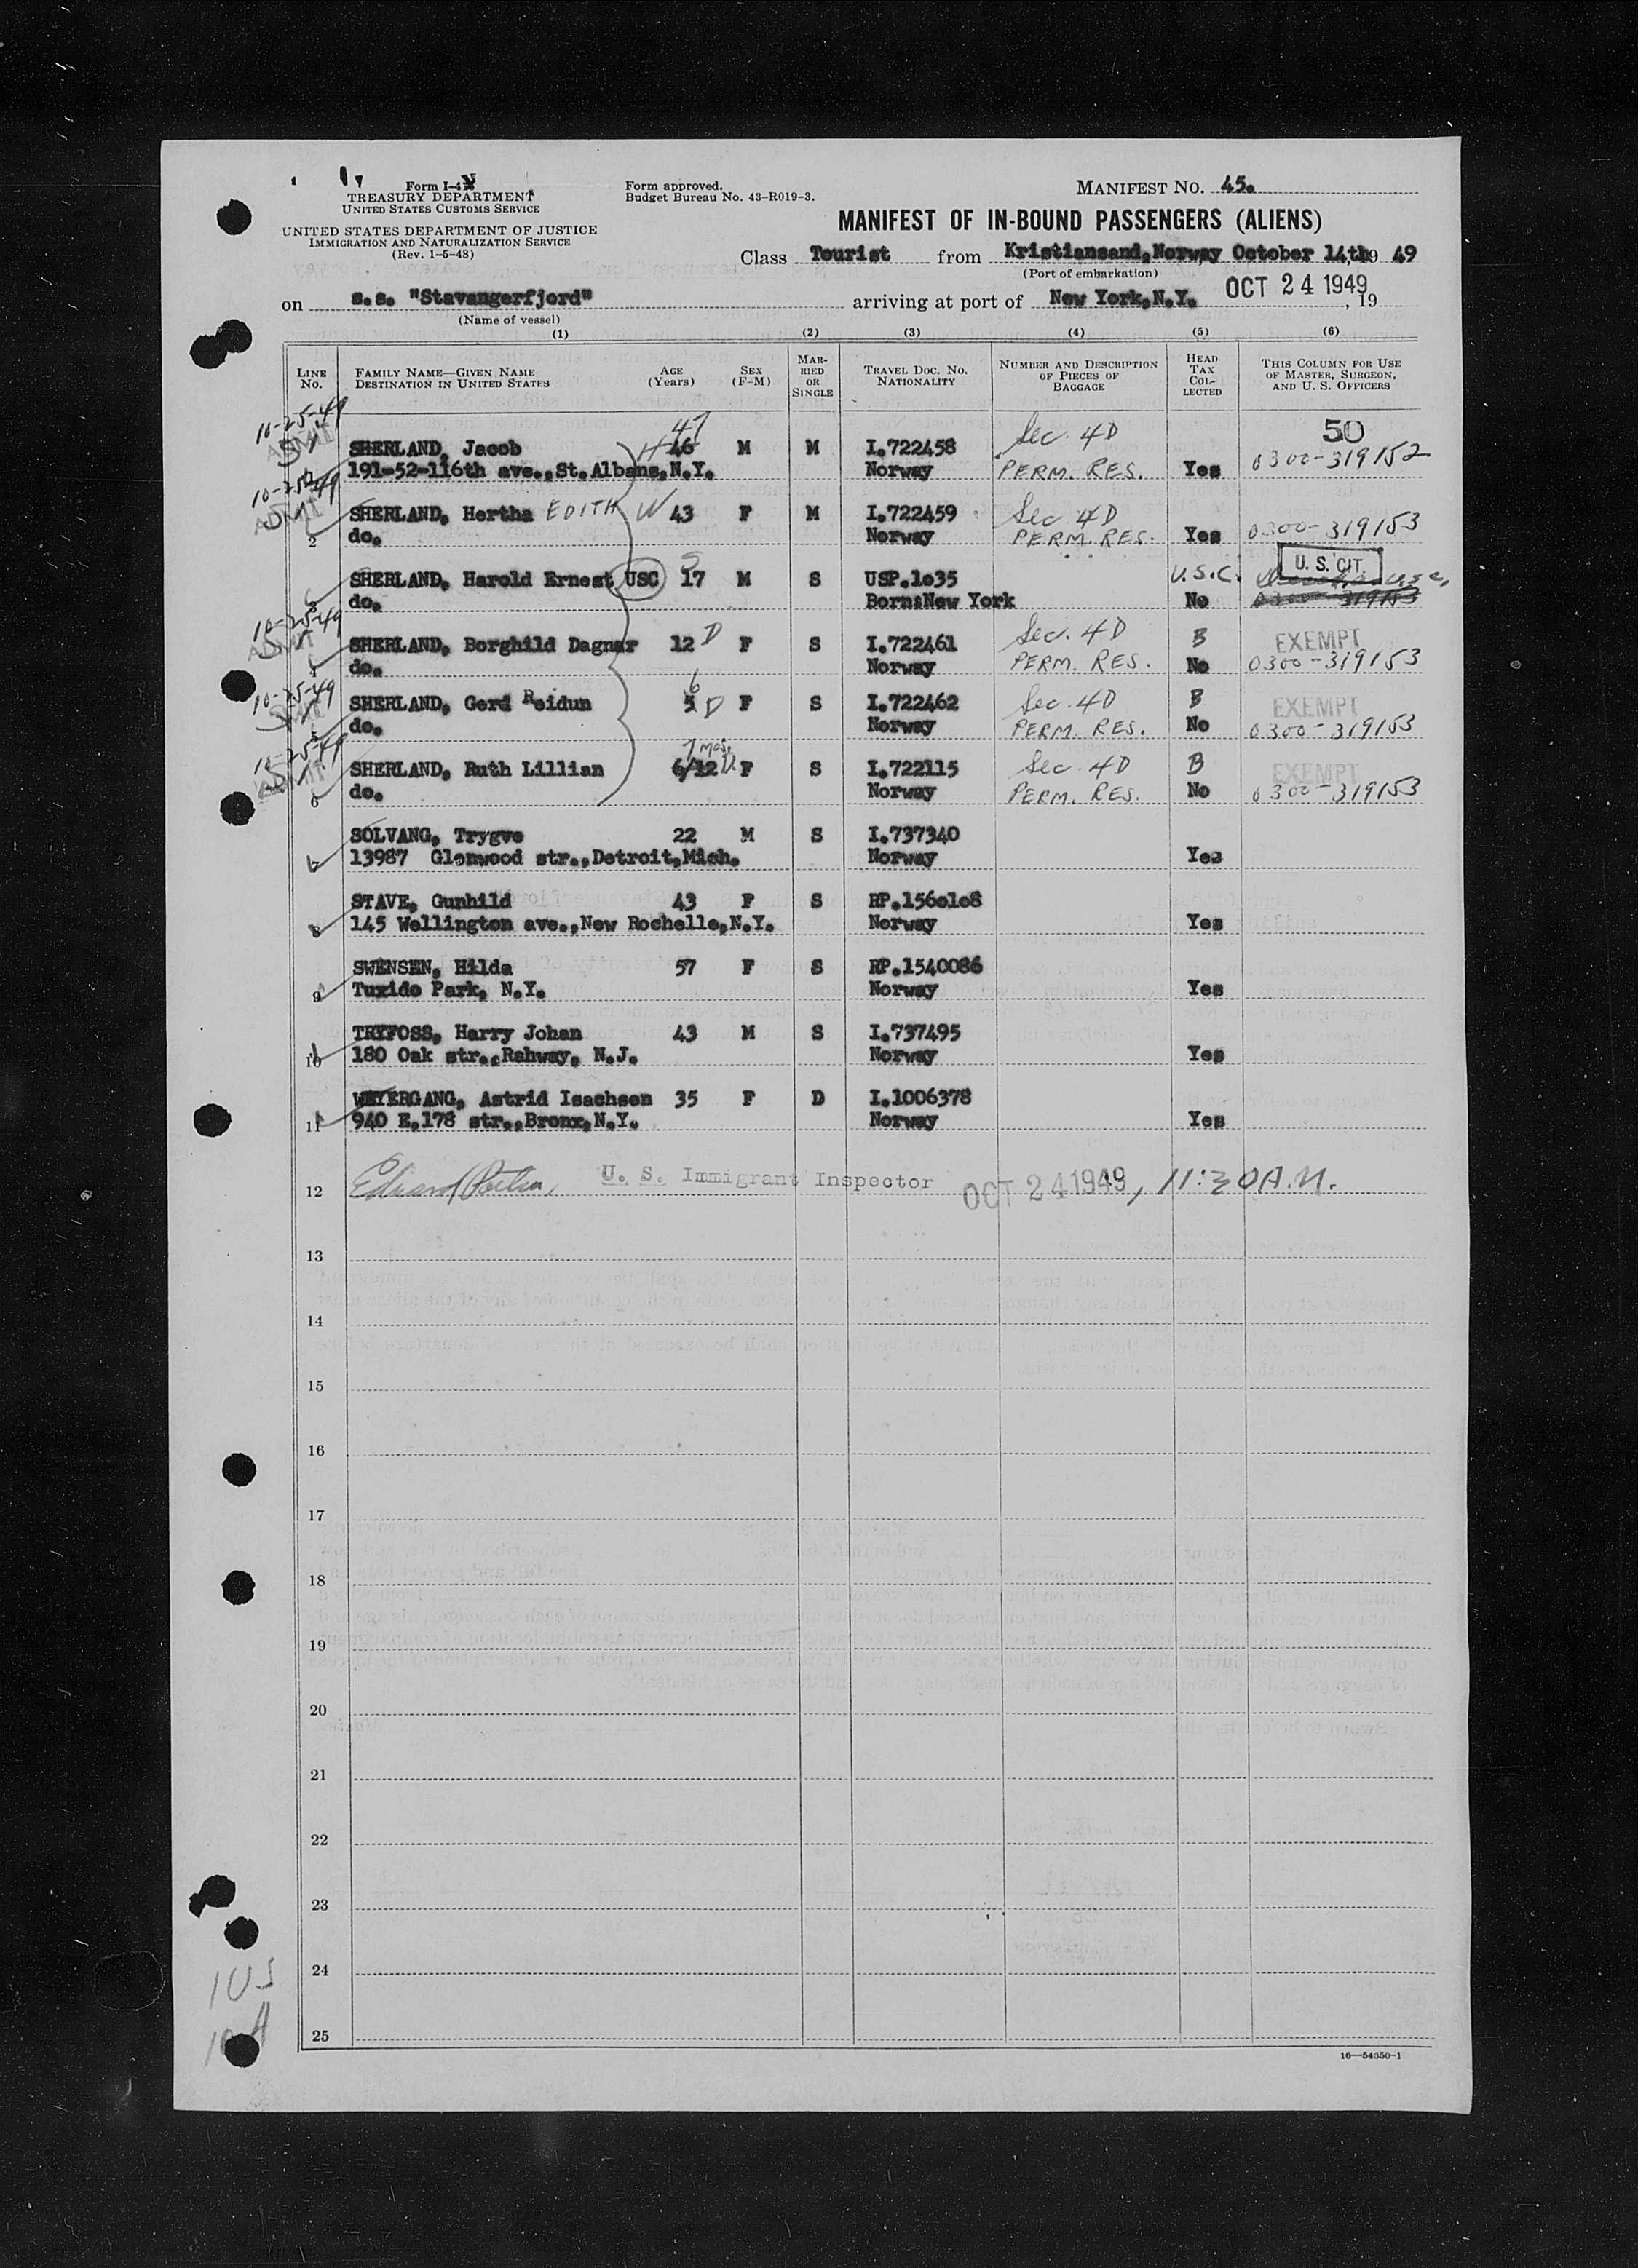 Form I-4
TREASURY DEPARTMENT
UNITED STATES CUSTOMS SERVICE
UNITED STATES DEPARTMENT OF JUSTICE
IMMIGRATION AND NATURALIZATION SERVICE
(Rev. 1-5-48)
Form approved.
Budget Bureau No. 43-R019-3.
MANIFEST NO. 45.
MANIFEST OF IN-BOUND PASSENGERS (ALIENS)
Class Tourist from Kristiansand, Norway October 14th 19 49
(Port of embarkation)
on s.s. "Stavangerfjord" arriving at port of New York, N.Y. OCT 24 1949, 19
(Name of vessel)
(1) (2) (3) (4) (5) (6)
LINE No. FAMILY NAME—GIVEN NAME DESTINATION IN UNITED STATES AGE (Years) SEX (F-M) MARRIED OR SINGLE TRAVEL DOC. NO. NATIONALITY NUMBER AND DESCRIPTION OF PIECES OF BAGGAGE HEAD TAX COLLECTED THIS COLUMN FOR USE OF MASTER, SURGEON, AND U. S. OFFICERS
10-25-49 47 50
ADMIT SHERLAND, Jacob H 46 M M I.722458 Sec. 4D 0300-319152
191-52-116th ave., St. Albans, N.Y. Norway PERM. RES. Yes
10-25-49
ADMIT SHERLAND, Hertha EDITH W 43 F M I.722459 Sec 4D
2 do. Norway PERM. RES. Yes 0300-319153
SHERLAND, Harold Ernest USC S 17 M S USP.1035 U.S.C. U. S. CIT.
do. Born:New York No 0300-319153
10-25-49
ADMIT SHERLAND, Borghild Dagnar 12 D F S I.722461 Sec. 4D B EXEMPT
do. Norway PERM. RES. No 0300-319153
10-25-49 6
ADMIT SHERLAND, Gerd Reidun 5 D F S I.722462 Sec. 4D B EXEMPT
5 do. Norway PERM. RES. No 0300-319153
10-25-49 7 mos.
ADMIT SHERLAND, Ruth Lillian 6/12 D. F S I.722115 Sec 4D B EXEMPT
6 do. Norway PERM. RES. No 0300-319153
SOLVANG, Trygve 22 M S I.737340
13987 Glenwood str., Detroit, Mich. Norway Yes
STAVE, Gunhild 43 F S RP.156o1o8
8 145 Wellington ave., New Rochelle, N.Y. Norway Yes
SWENSEN, Hilda 57 F S RP.1540086
9 Tuxido Park, N.Y. Norway Yes
TRYFOSS, Harry Johan 43 M S I.737495
10 180 Oak str., Rahway, N.J. Norway Yes
WEYERGANG, Astrid Isachsen 35 F D I.1006378
11 940 E.178 str., Bronx, N.Y. Norway Yes
12 U. S. Immigrant Inspector OCT 24 1949, 11:30 A.M.
13
14
15
16
17
18
19
20
21
22
23
24
25
1 US
10 A
16—54350-1